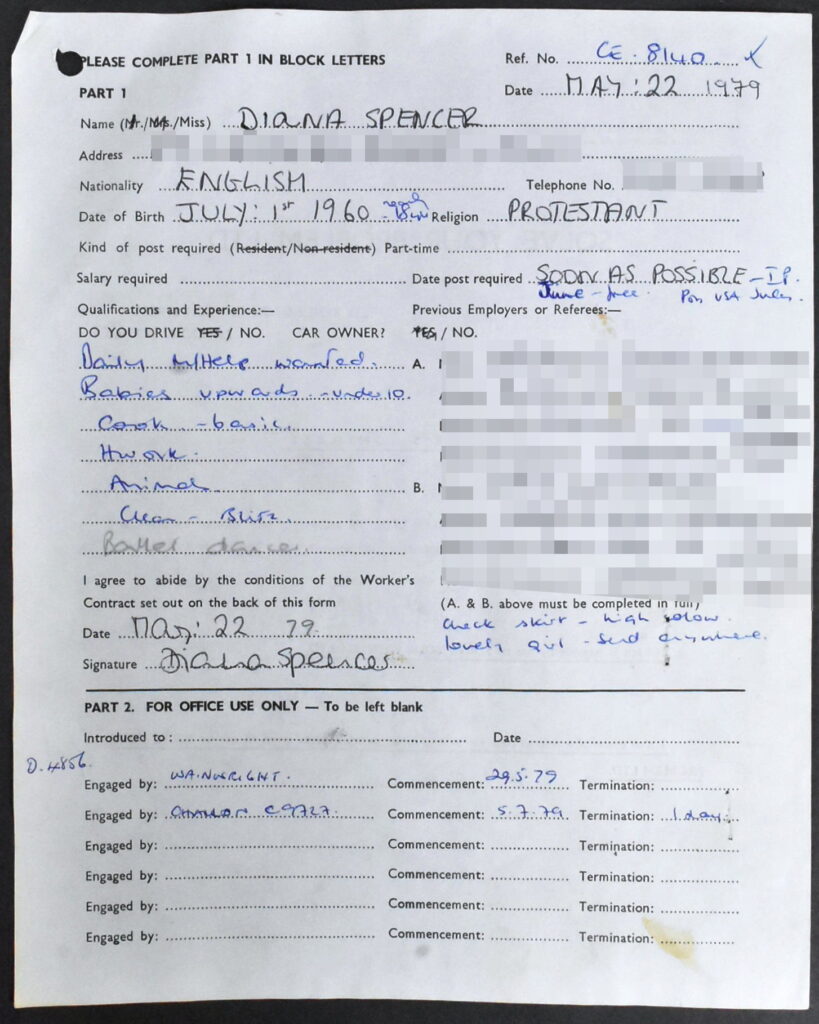 PLEASE COMPLETE PART 1 IN BLOCK LETTERS
Ref. No. CE. 8140.
PART 1
Date MAY: 22 1979
Name (Mr./Mrs./Miss) DIANA SPENCER
Address
Nationality ENGLISH
Telephone No.
Date of Birth JULY: 1st 1960
Religion PROTESTANT
Kind of post required (Resident/Non-resident) Part-time
Salary required
Date post required SOON AS POSSIBLE
June - free. USA July.
Qualifications and Experience:—
Previous Employers or Referees:—
DO YOU DRIVE YES / NO. CAR OWNER? YES / NO.
Daily M/Help wanted.
A.
Babies upwards - under 10.
Cook - basic.
Hwork.
Animals
B.
Clean - Blitz.
Ballet dance
I agree to abide by the conditions of the Worker's
Contract set out on the back of this form
(A. & B. above must be completed in full)
check skirt - high
Date May: 22 79.
lovely girl - send anywhere.
Signature Diana Spencer
PART 2. FOR OFFICE USE ONLY — To be left blank
Introduced to :
Date
D. 4856.
Engaged by: WAINWRIGHT. Commencement: 29.5.79 Termination:
Engaged by: C9727. Commencement: 5.7.79 Termination: 1 day.
Engaged by: Commencement: Termination:
Engaged by: Commencement: Termination:
Engaged by: Commencement: Termination:
Engaged by: Commencement: Termination: